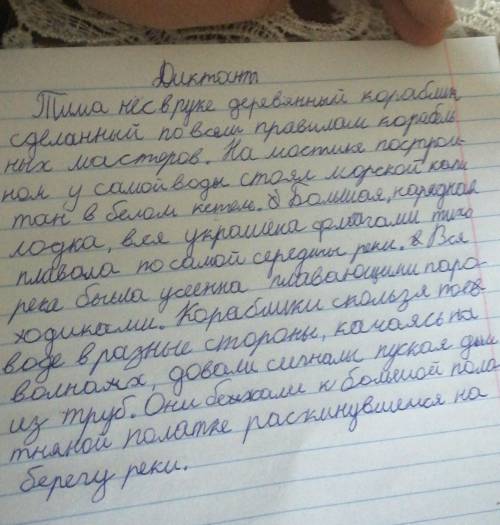 Диктант
Тима нёс вруке деревянный кораблик
сделанный повсем правилам корабль
ных мастеров. На мостике построи-
ном у самой воды стоял морской капи
тан в белом кителе. Большая, нарядная
лодка, вся украшена флагами тихо
плавала посамой середины реки. Вся
река была усеенна плавающими паро-
ходиками. Кораблики скользя по
воде в разные стороны, качаясь на
волнах, довали сигналы пуская дым
из труб. Они бежали к большой поло
тняной полатке раскинувшемся на
берегу реки.